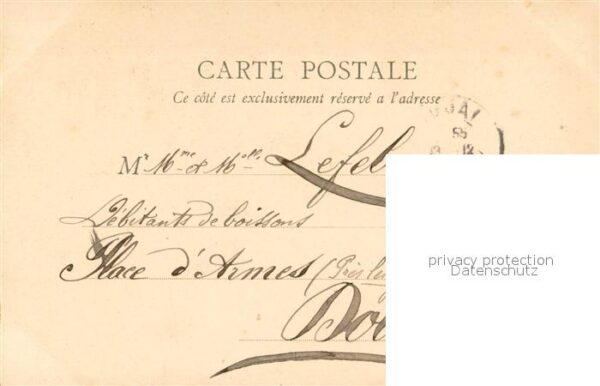 CARTE POSTALE
Ce côté est exclusivement réservé a l'adresse
OUAI
Mr Mme & Melle Lefeb
Débitants de boissons
Place d'Armes (Près le
Dou
privacy protection
Datenschutz